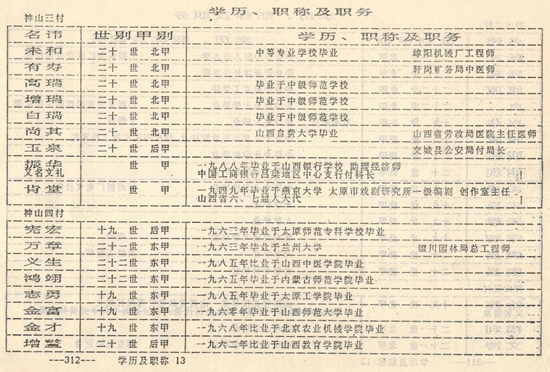 学历、职称及职务
神山三村
名讳 世别甲别 学历、职称及职务
来和 二十 世 北甲 中等专业学校毕业 崞阳机械厂工程师
有寿 二十 世 北甲 轩岗矿务局中医师
高瑞 二十 世 北甲 毕业于中级师范学校
增瑞 二十 世 北甲 毕业于中级师范学校
白瑞 二十 世 北甲 毕业于中级师范学校
尚其 二十 世 北甲 山西自费大学毕业 山西省劳改局医院主任医师
玉泉 二十 世 后甲 文城县公安局付局长
振华 一九八八年毕业于山西银行学校 助理经济师
又名文礼 中国工商银行吕梁地区中心支行付科长
肯堂 一九四九年毕业于燕京大学 太原市戏剧研究所一级编剧 创作室主任
山西省六、七届人大代
神山四村
宪宏 十九 世 后甲 一九六三年毕业于太原师范专科学校毕业
万章 二十二世 东甲 一九六三年毕业于兰州大学 银川园林局总工程师
义生 二十二世 东甲 一九八五年比业于山西中医学院毕业
鸿翊 二十二世 东甲 一九六五年毕业于内蒙古师范学院毕业
志勇 十九 世 东甲 一九八五年毕业于太原工学院毕业
金富 十九 世 东甲 一九六零年毕业于山西师范大学毕业
金才 十九 世 东甲 一九六八年比业于北京农业机械学院毕业
增 二十 世 后甲 一九六二年毕业于山西教育学院毕业
---312--- 学历及职称 13